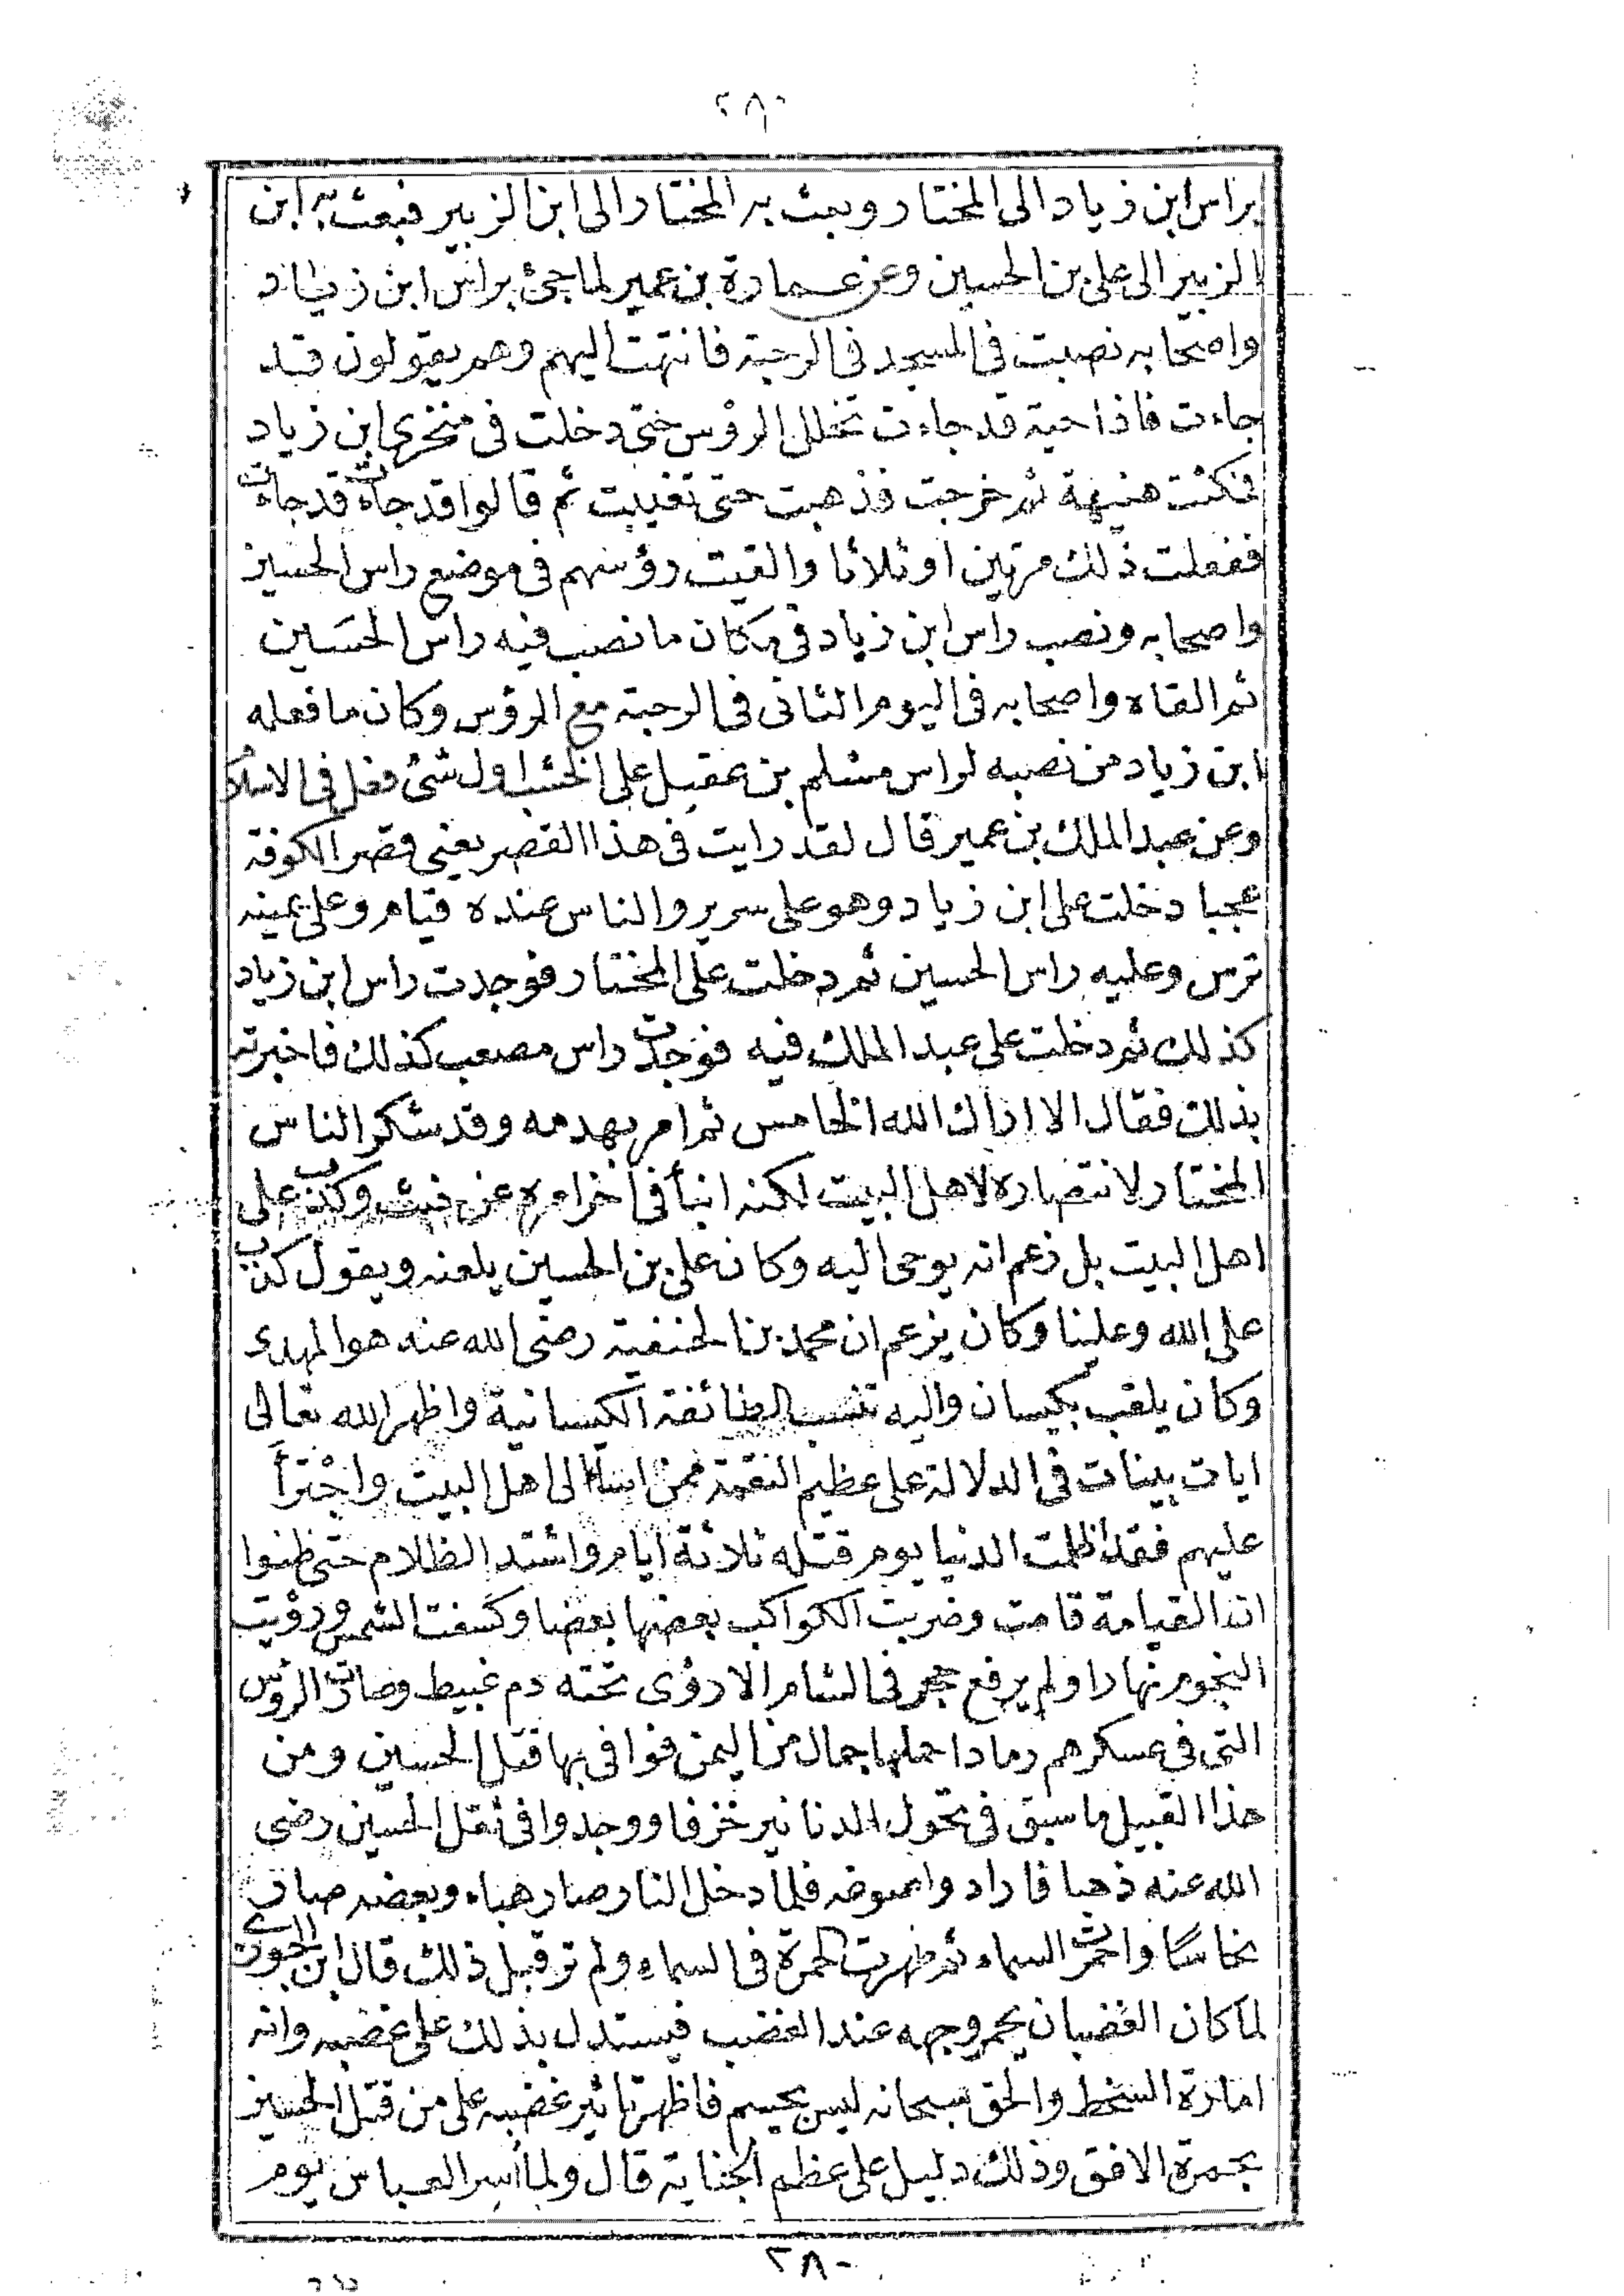 ٢٨٠
براس ابن زياد الى المختار وبعث به المختار الى ابن الزبير فبعث به ابن
الزبير الى على بن الحسين وعن عمارة بن عمير لما جئ براس ابن زياد
واصحابه نصبت فى المسجد فى الرحبة فانتهت اليهم وهم يقولون قد
جاءت فاذا حية قد جاءت تخلل الرؤس حتى دخلت فى منخرى ابن زياد
فمكثت هنيهة ثم خرجت فذهبت حتى تغيبت ثم قالوا قد جاءت قد جاءت
ففعلت ذلك مرتين او ثلاثا والقيت رؤسهم فى موضع راس الحسين
واصحابه ونصب راس ابن زياد فى مكان ما نصب فيه راس الحسين
ثم القاه واصحابه فى اليوم الثانى فى الرحبة مع الرؤس وكان ما فعله
ابن زياد من نصبه لراس مسلم بن عقيل على الخشب اول شئ فعل فى الاسلام
وعن عبد الملك بن عمير قال لقد رايت فى هذا القصر يعنى قصر الكوفة
عجبا دخلت على ابن زياد وهو على سرير والناس عنده قيام وعلى يمينه
ترس وعليه راس الحسين ثم دخلت على المختار فوجدت راس ابن زياد
كذلك ثم دخلت على عبد الملك فيه فوجدت راس مصعب كذلك فاخبرته
بذلك فقال الا اراك الله الخامس ثم امر بهدمه وقد شكر الناس
المختار لانتصاره لاهل البيت لكنه انبأ فى اخر امره عن خبث وكذب على
اهل البيت بل زعم انه يوحى اليه وكان على بن الحسين يلعنه ويقول كذب
على الله وعلينا وكان يزعم ان محمد بن الحنفية رضى الله عنه هو المهدى
وكان يلقب بكيسان واليه تنسب الطائفة الكيسانية واظهر الله تعالى
ايات بينات فى الدلالة على عظيم النقمة ممن اساء الى اهل البيت واجْترأ
عليهم فقد اظلمت الدنيا يوم قتله ثلاثة ايام واشتد الظلام حتى ظنوا
ان القيامة قامت وضربت الكواكب بعضها بعضا وكسفت الشمس ورؤيت
النجوم نهارا ولم يرفع حجر فى الشام الا رؤى تحته دم عبيط وصارت الرؤس
التى فى عسكرهم رمادا حملها جمال من اليمن فوافى بها قتل الحسين ومن
هذا القبيل ما سبق فى تحول الدنانير خزفا ووجدوا فى ثقل الحسين رضى
الله عنه ذهبا فاراد وا صوغه فلما دخل النار صار هباء وبعضه صار
نحاسًا واحمرت السماء ثم ظهرت الحمرة فى السماء ولم تر قبل ذلك قال ابن الجوزى
لما كان الغضبان يحمر وجهه عند الغضب فيستدل بذلك على غضبه وانه
امارة السخط والحق سبحانه ليس بجسم فاظهر تاثير غضبه على من قتل الحسين
بحمرة الافق وذلك دليل على عظم الجناية قال ولما أسر العباس يوم
٢٨٠